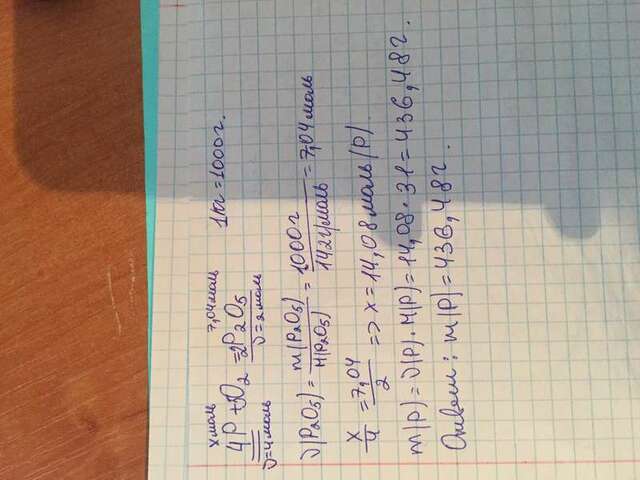 x моль 7,04 моль
4P + 5O₂ = 2P₂O₅ 1 кг = 1000 г.
ν = 4 моль ν = 2 моль
ν(P₂O₅) = m(P₂O₅) / M(P₂O₅) = 1000 г / 142 г/моль = 7,04 моль
x/4 = 7,04/2 => x = 14,08 моль (P)
m(P) = ν(P) · M(P) = 14,08 · 31 = 436,48 г.
Ответ: m(P) = 436,48 г.